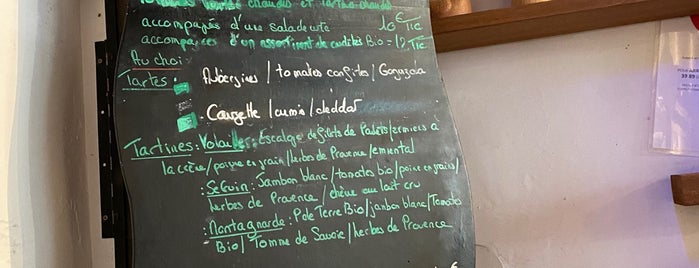 chaudes et Tartine chaudes
accompagnés d'une salade verte 10€ TTC
accompagnées d'un assortiment de crudités Bio = 12 TTC
Au choix
Tartes: Aubergines / tomates confites / Gorgonzola
Courgette / cumin / cheddar
Tartines: Volaille: Escalope de filets de Poulets fermiers à
la crème / poivre en grain / herbes de Provence / emiental
: Seguin: Jambon blanc / tomates bio / poivre en grains /
herbes de Provence / chèvre au lait cru
: Montagnarde: P de Terre Bio / janbon blanc / Tomates
Bio / Tomme de Savoie / herbes de Provence